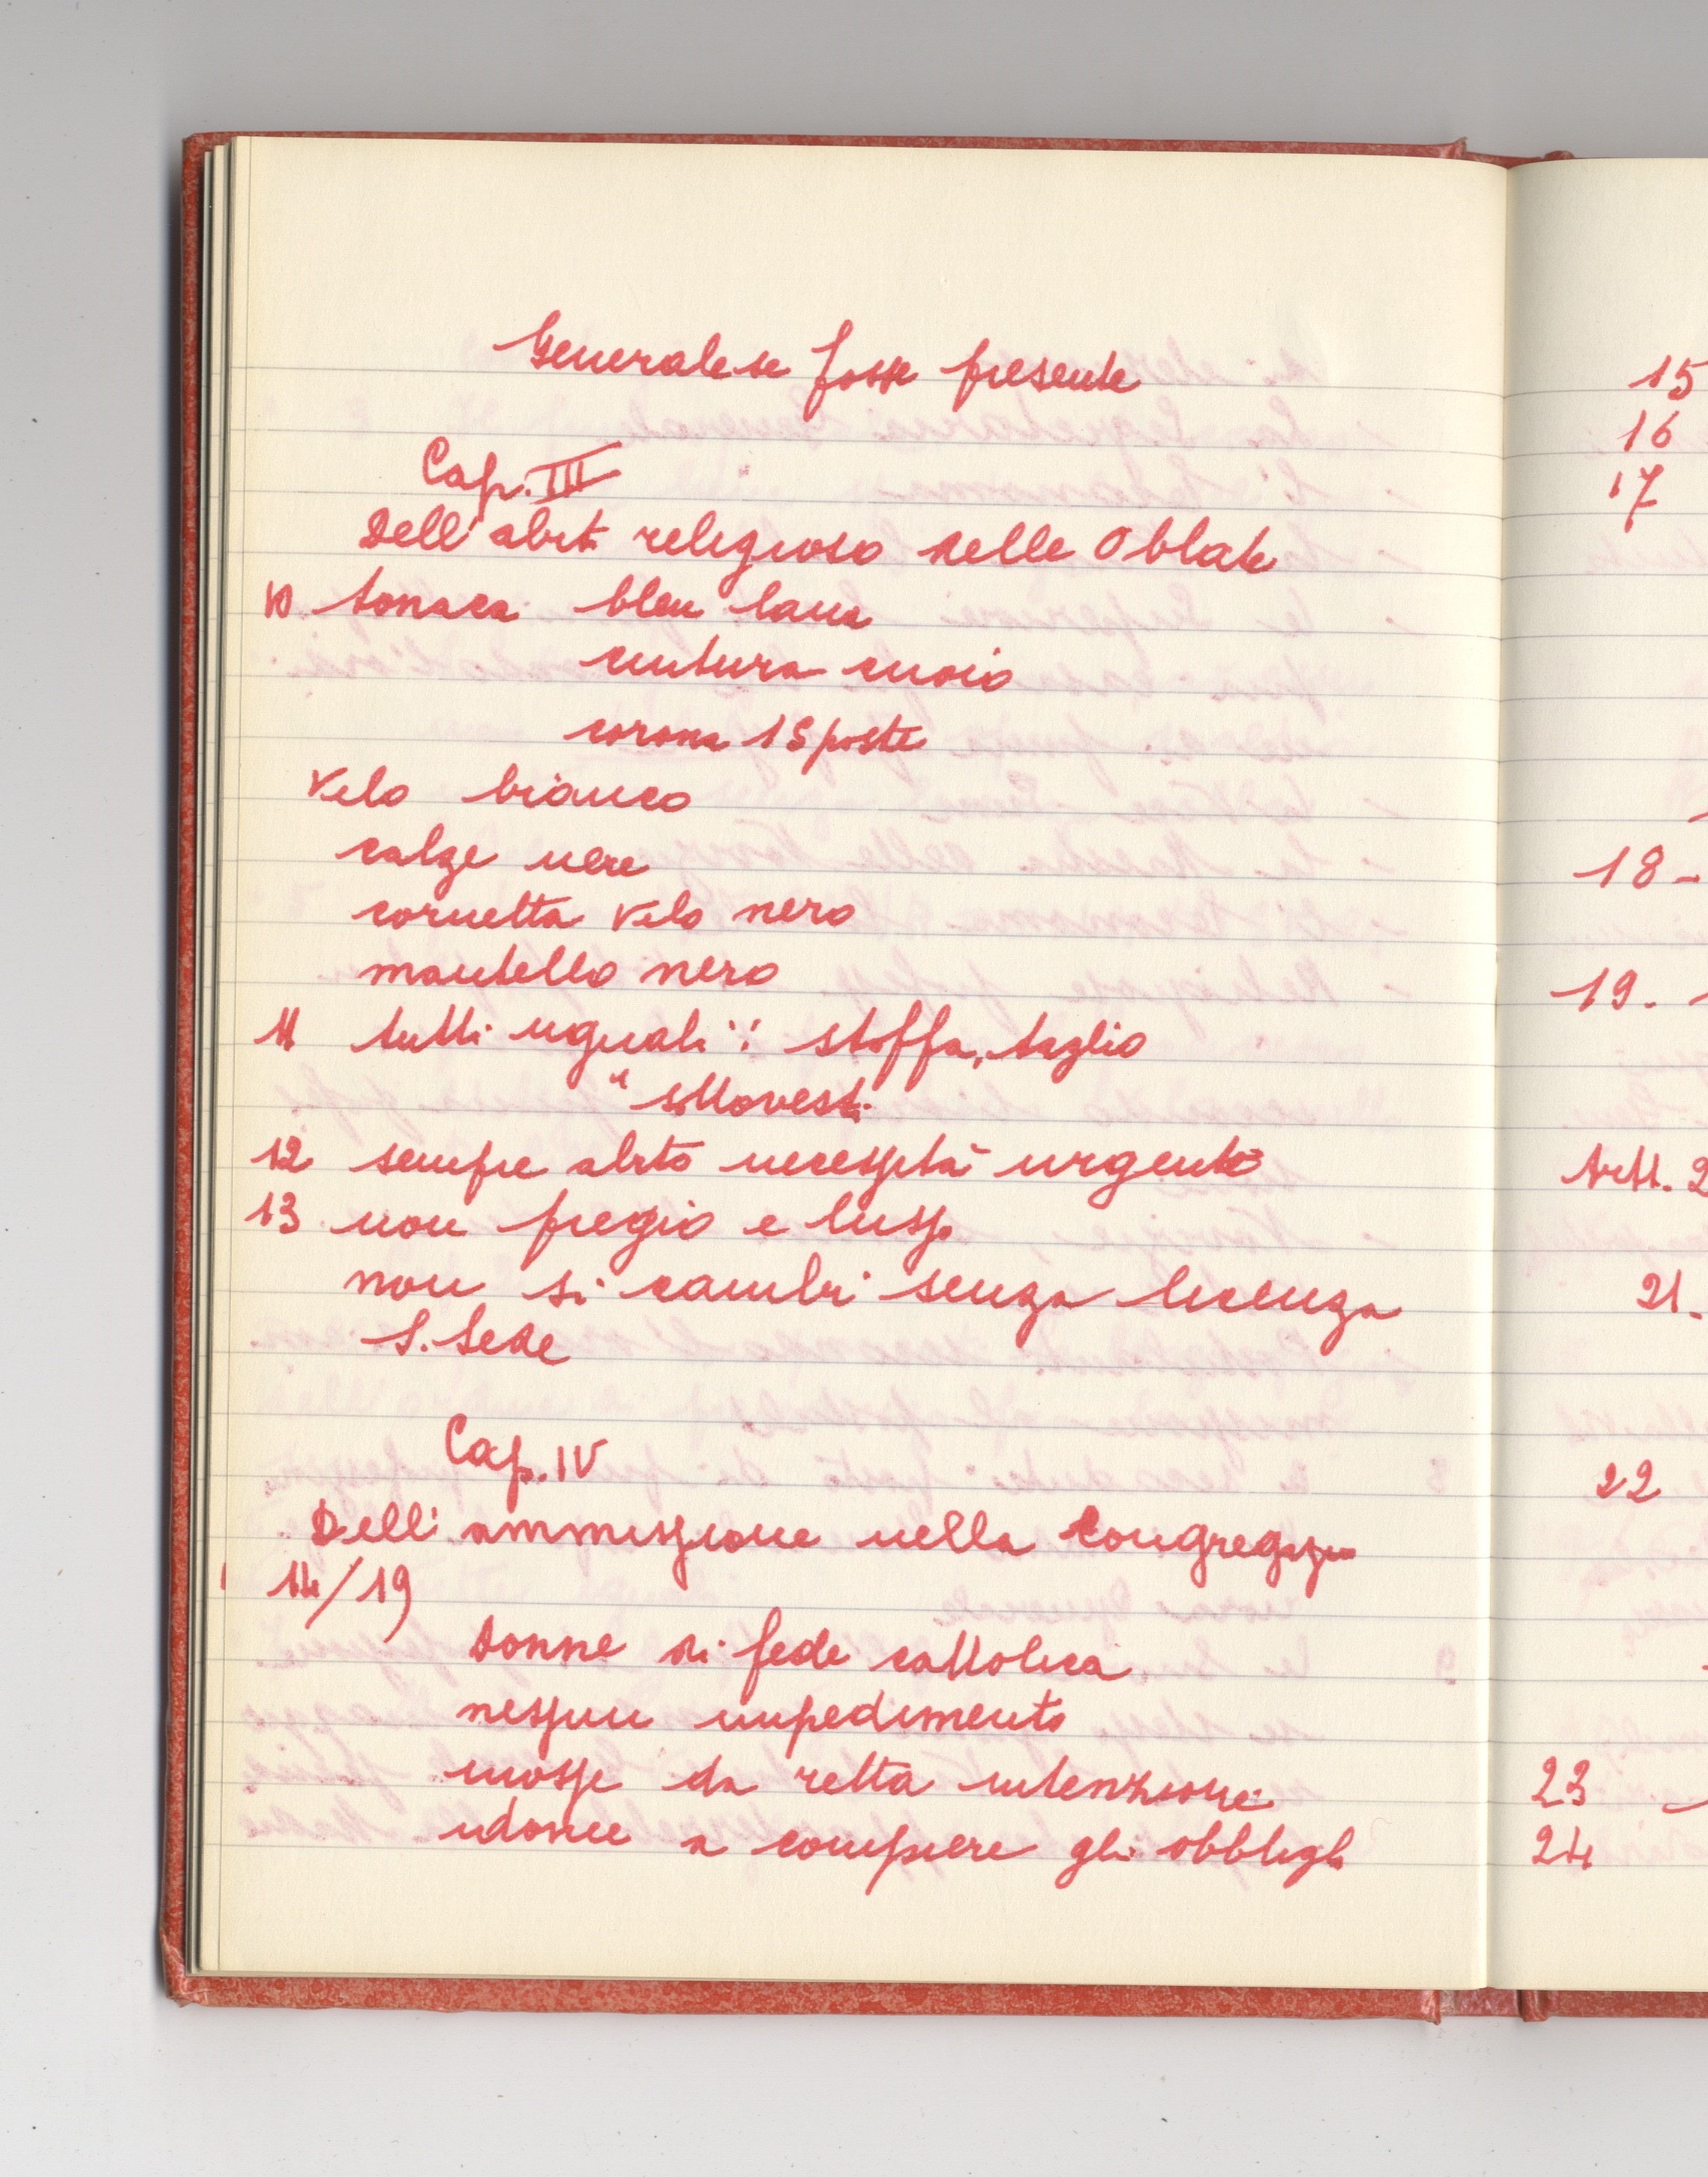 Generale se fosse presente
Cap. III
Dell'abito religioso delle Oblate
10 tonaca bleu lana
cintura cuoio
corona 15 poste
velo bianco
calze nere
cornetta velo nero
mantello nero
11 tutti uguali : stoffa, taglio
" sottovesti
12 sempre abito necessità urgente
13 non fregio e lusso
non si cambi senza licenza
S. Sede
Cap. IV
Dell'ammissione nella Congregazio
14/19
donne di fede cattolica
nessun impedimento
mosse da retta intenzione
idonee a compiere gli obblighi
15
16
17
18 -
19 -
Art. 2
21 -
22
23
24